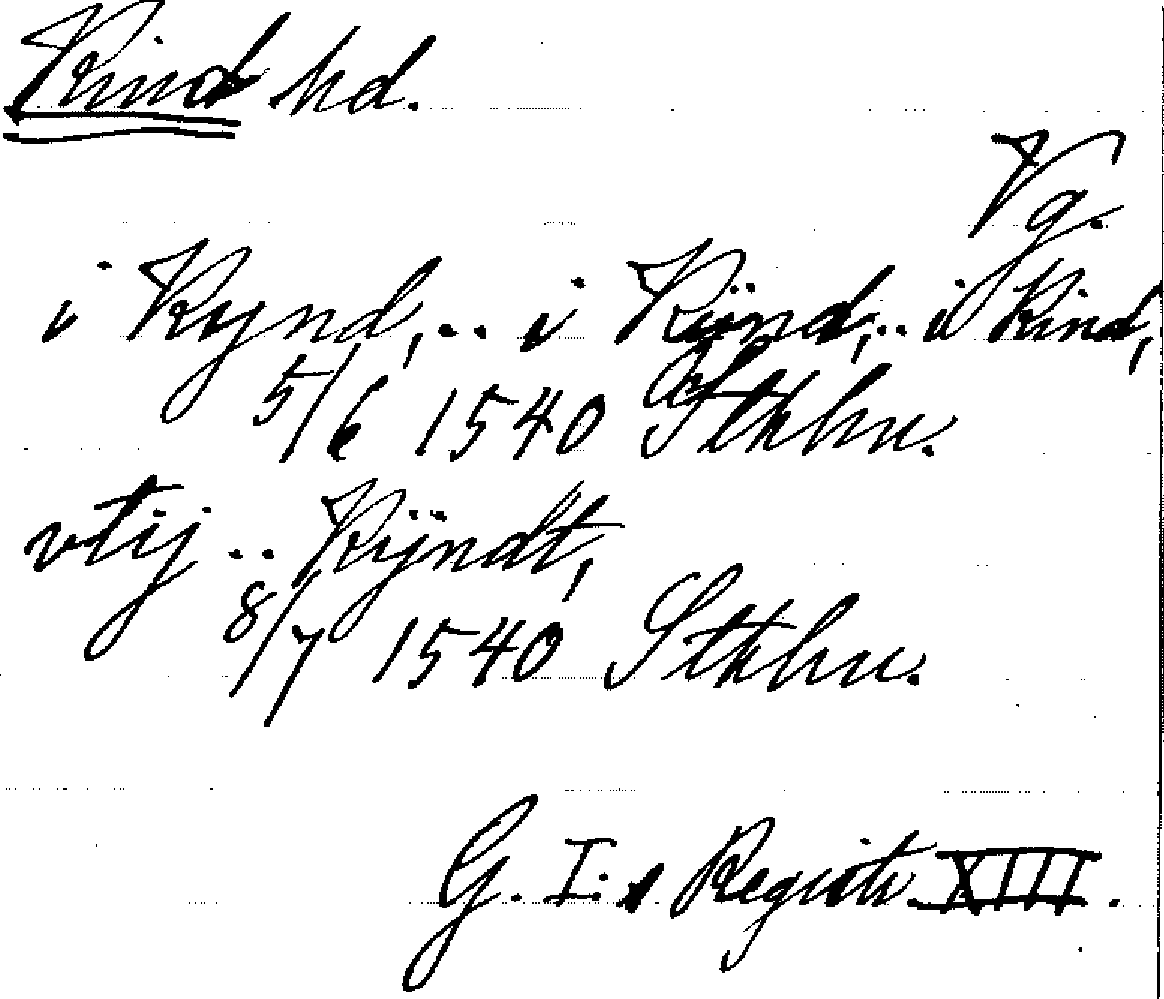 Kind hd.
Vg.
i Kynd,.. i Kÿnd,.. i Kind,
5/6 1540 Sthlm.
vtij .. Kÿndt,
8/7 1540 Sthlm.
G. I:s Registr. XIII.